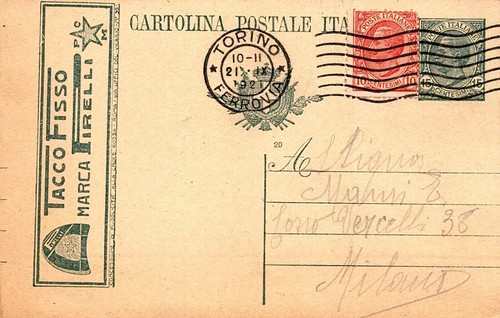 CARTOLINA POSTALE ITA
TACCO FISSO
MARCA PIRELLI
M
PIRELLI
TORINO
10-11
21 IX
1921
FERROVIA
POSTE ITALIANE
10 CENTESIMI 10
POSTE ITALIANE
15 CENTESIMI 15
20
A
Signor
Mauri E
Corso Vercelli 38
Milano